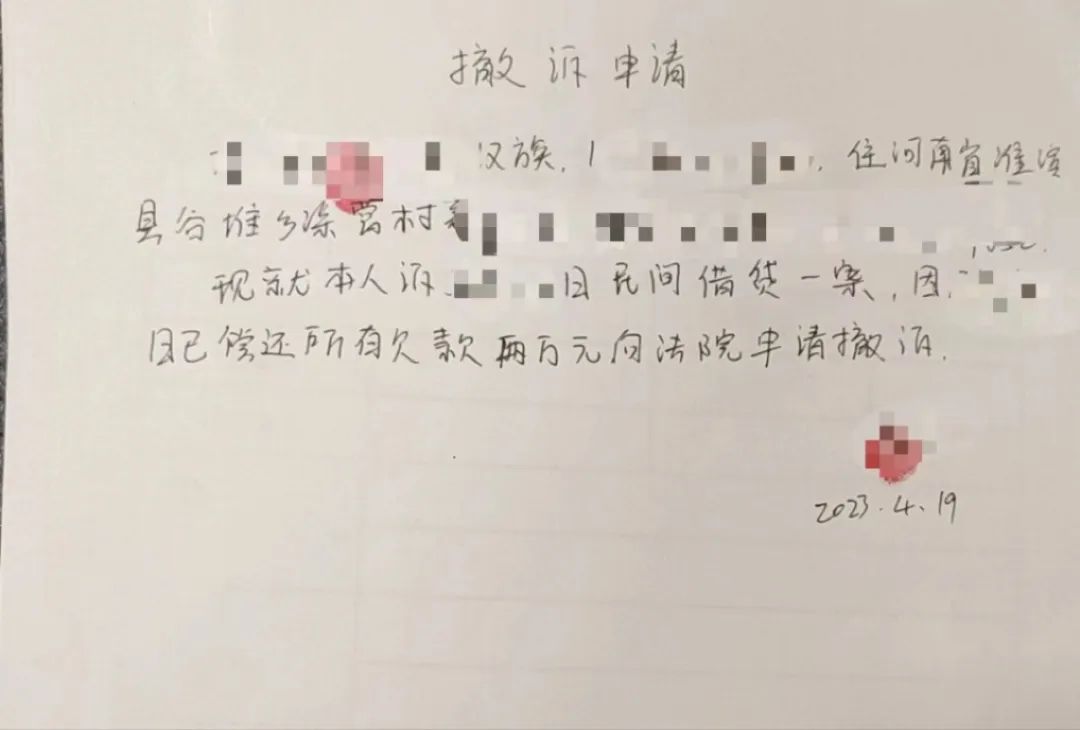 撤诉申请
汉族，1 ，住河南省淮滨
县谷堆乡涂营村
现就本人诉 日民间借贷一案，因
日已偿还所有欠款两万元向法院申请撤诉.
2023.4.19